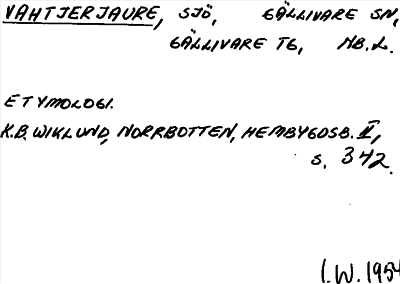 VAHTJERJAURE, SJÖ, GÄLLIVARE SN,
GÄLLIVARE TG, NB.L.
ETYMOLOGI.
K.B. WIKLUND, NORRBOTTEN, HEMBYGDSB. II,
s. 342.
I.W. 1954